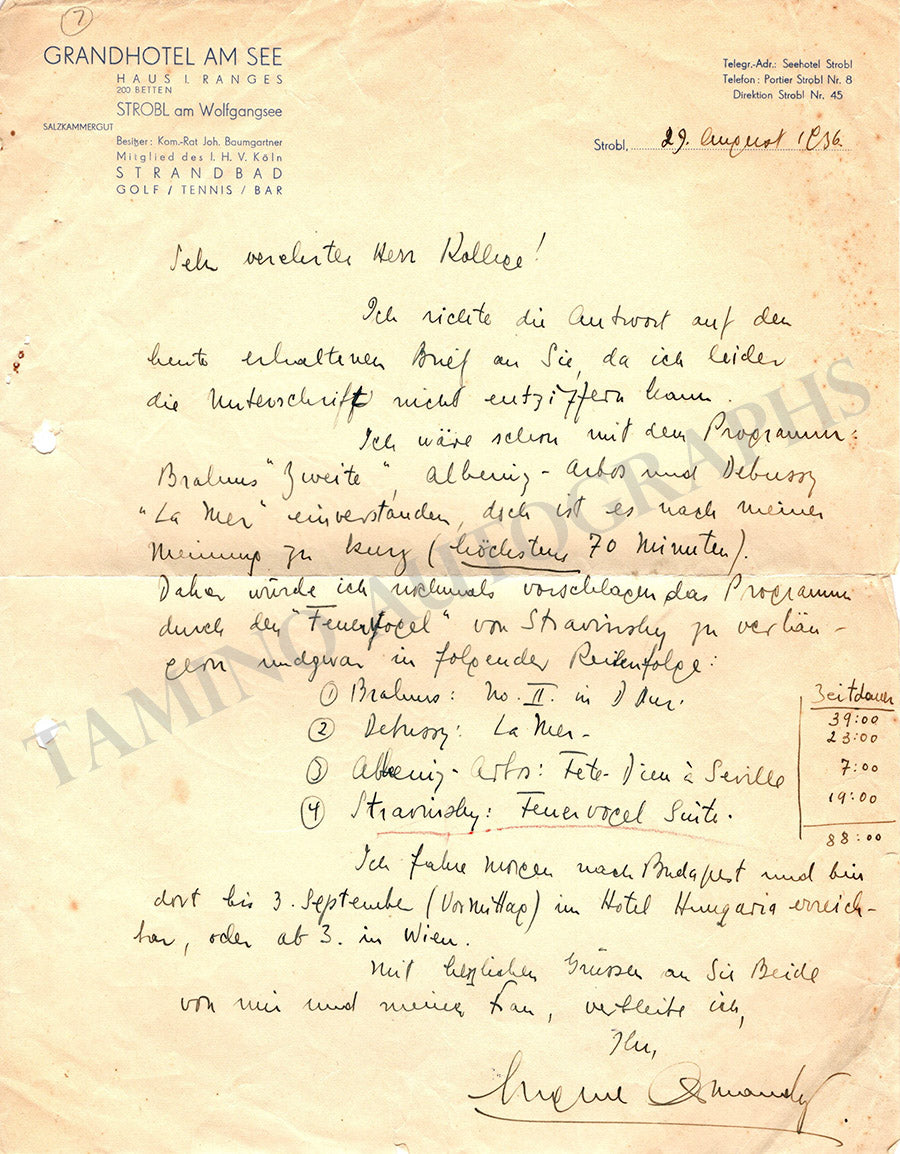 7
GRANDHOTEL AM SEE
HAUS I. RANGES
200 BETTEN
STROBL am Wolfgangsee
SALZKAMMERGUT
Besitzer: Kom.-Rat Joh. Baumgartner
Mitglied des I. H. V. Köln
STRANDBAD
GOLF / TENNIS / BAR
Telegr.-Adr.: Seehotel Strobl
Telefon: Portier Strobl Nr. 8
Direktion Strobl Nr. 45
Strobl, 29. August 1936.
Sehr verehrter Herr Kollege!
Ich richte die Antwort auf den
heute erhaltenen Brief an Sie, da ich leider
die Unterschrift nicht entziffern kann.
Ich wäre schon mit dem Programm:
Brahms "Zweite", Albeniz-Arbos und Debussy
"La Mer" einverstanden, doch ist es nach meiner
Meinung zu kurz (höchstens 70 Minuten).
Daher würde ich nochmals vorschlagen das Programm
durch den "Feuervogel" von Stravinsky zu verlän-
gern undzwar in folgender Reihenfolge:
① Brahms: No. II. in D Dur.
② Debussy: La Mer-
③ Albeniz-Arbos: Fete-Dieu à Seville
④ Stravinsky: Feuervogel Suite.
Zeitdauer
39:00
23:00
7:00
19:00
88:00
Ich fahre morgen nach Budapest und bin
dort bis 3. September (Vormittag) im Hotel Hungaria erreich-
bar, oder ab 3. in Wien.
Mit herzlichen Grüssen an Sie Beide
von mir und meiner Frau, verbleibe ich,
Ihr,
Eugene Ormandy
TAMINO AUTOGRAPHS